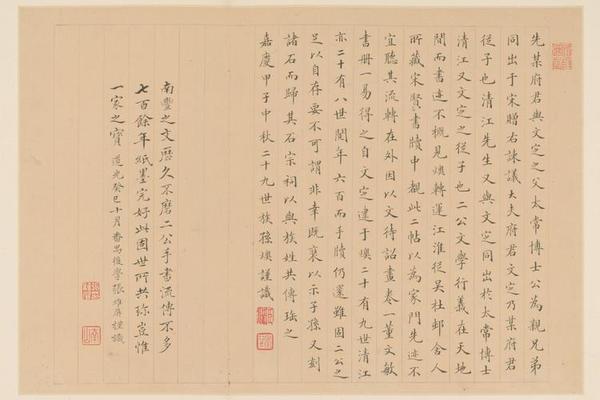 先某府君與文定之父太常博士公為親兄弟
同出于宋贈右諫議大夫府君文定乃某府君
從子也清江先生又與文定同出於太常博士
清江又文定之從子也二公文學行義在天地
間而書迹不概見燠轉運江淮從吳杜邨舍人
所藏宋賢書牘中覩此二帖以為家門先迹不
宜聽其流轉在外因以文待詔畫卷一董文敏
書冊一易得之自文定逮于燠二十有九世清江
亦二十有八世閱年六百而手牘仍還雖固二公之
足以自存要不可謂非幸既裏以示子孫又刻
諸石而歸其石宗祠以與族姓共傳珤之
嘉慶甲子中秋二十九世族孫燠謹識
南豐之文歷久不磨二公手書流傳不多
七百餘年紙墨完好此固世所共珍豈惟
一家之寶 道光癸巳十月番禺後學張維屏謹識